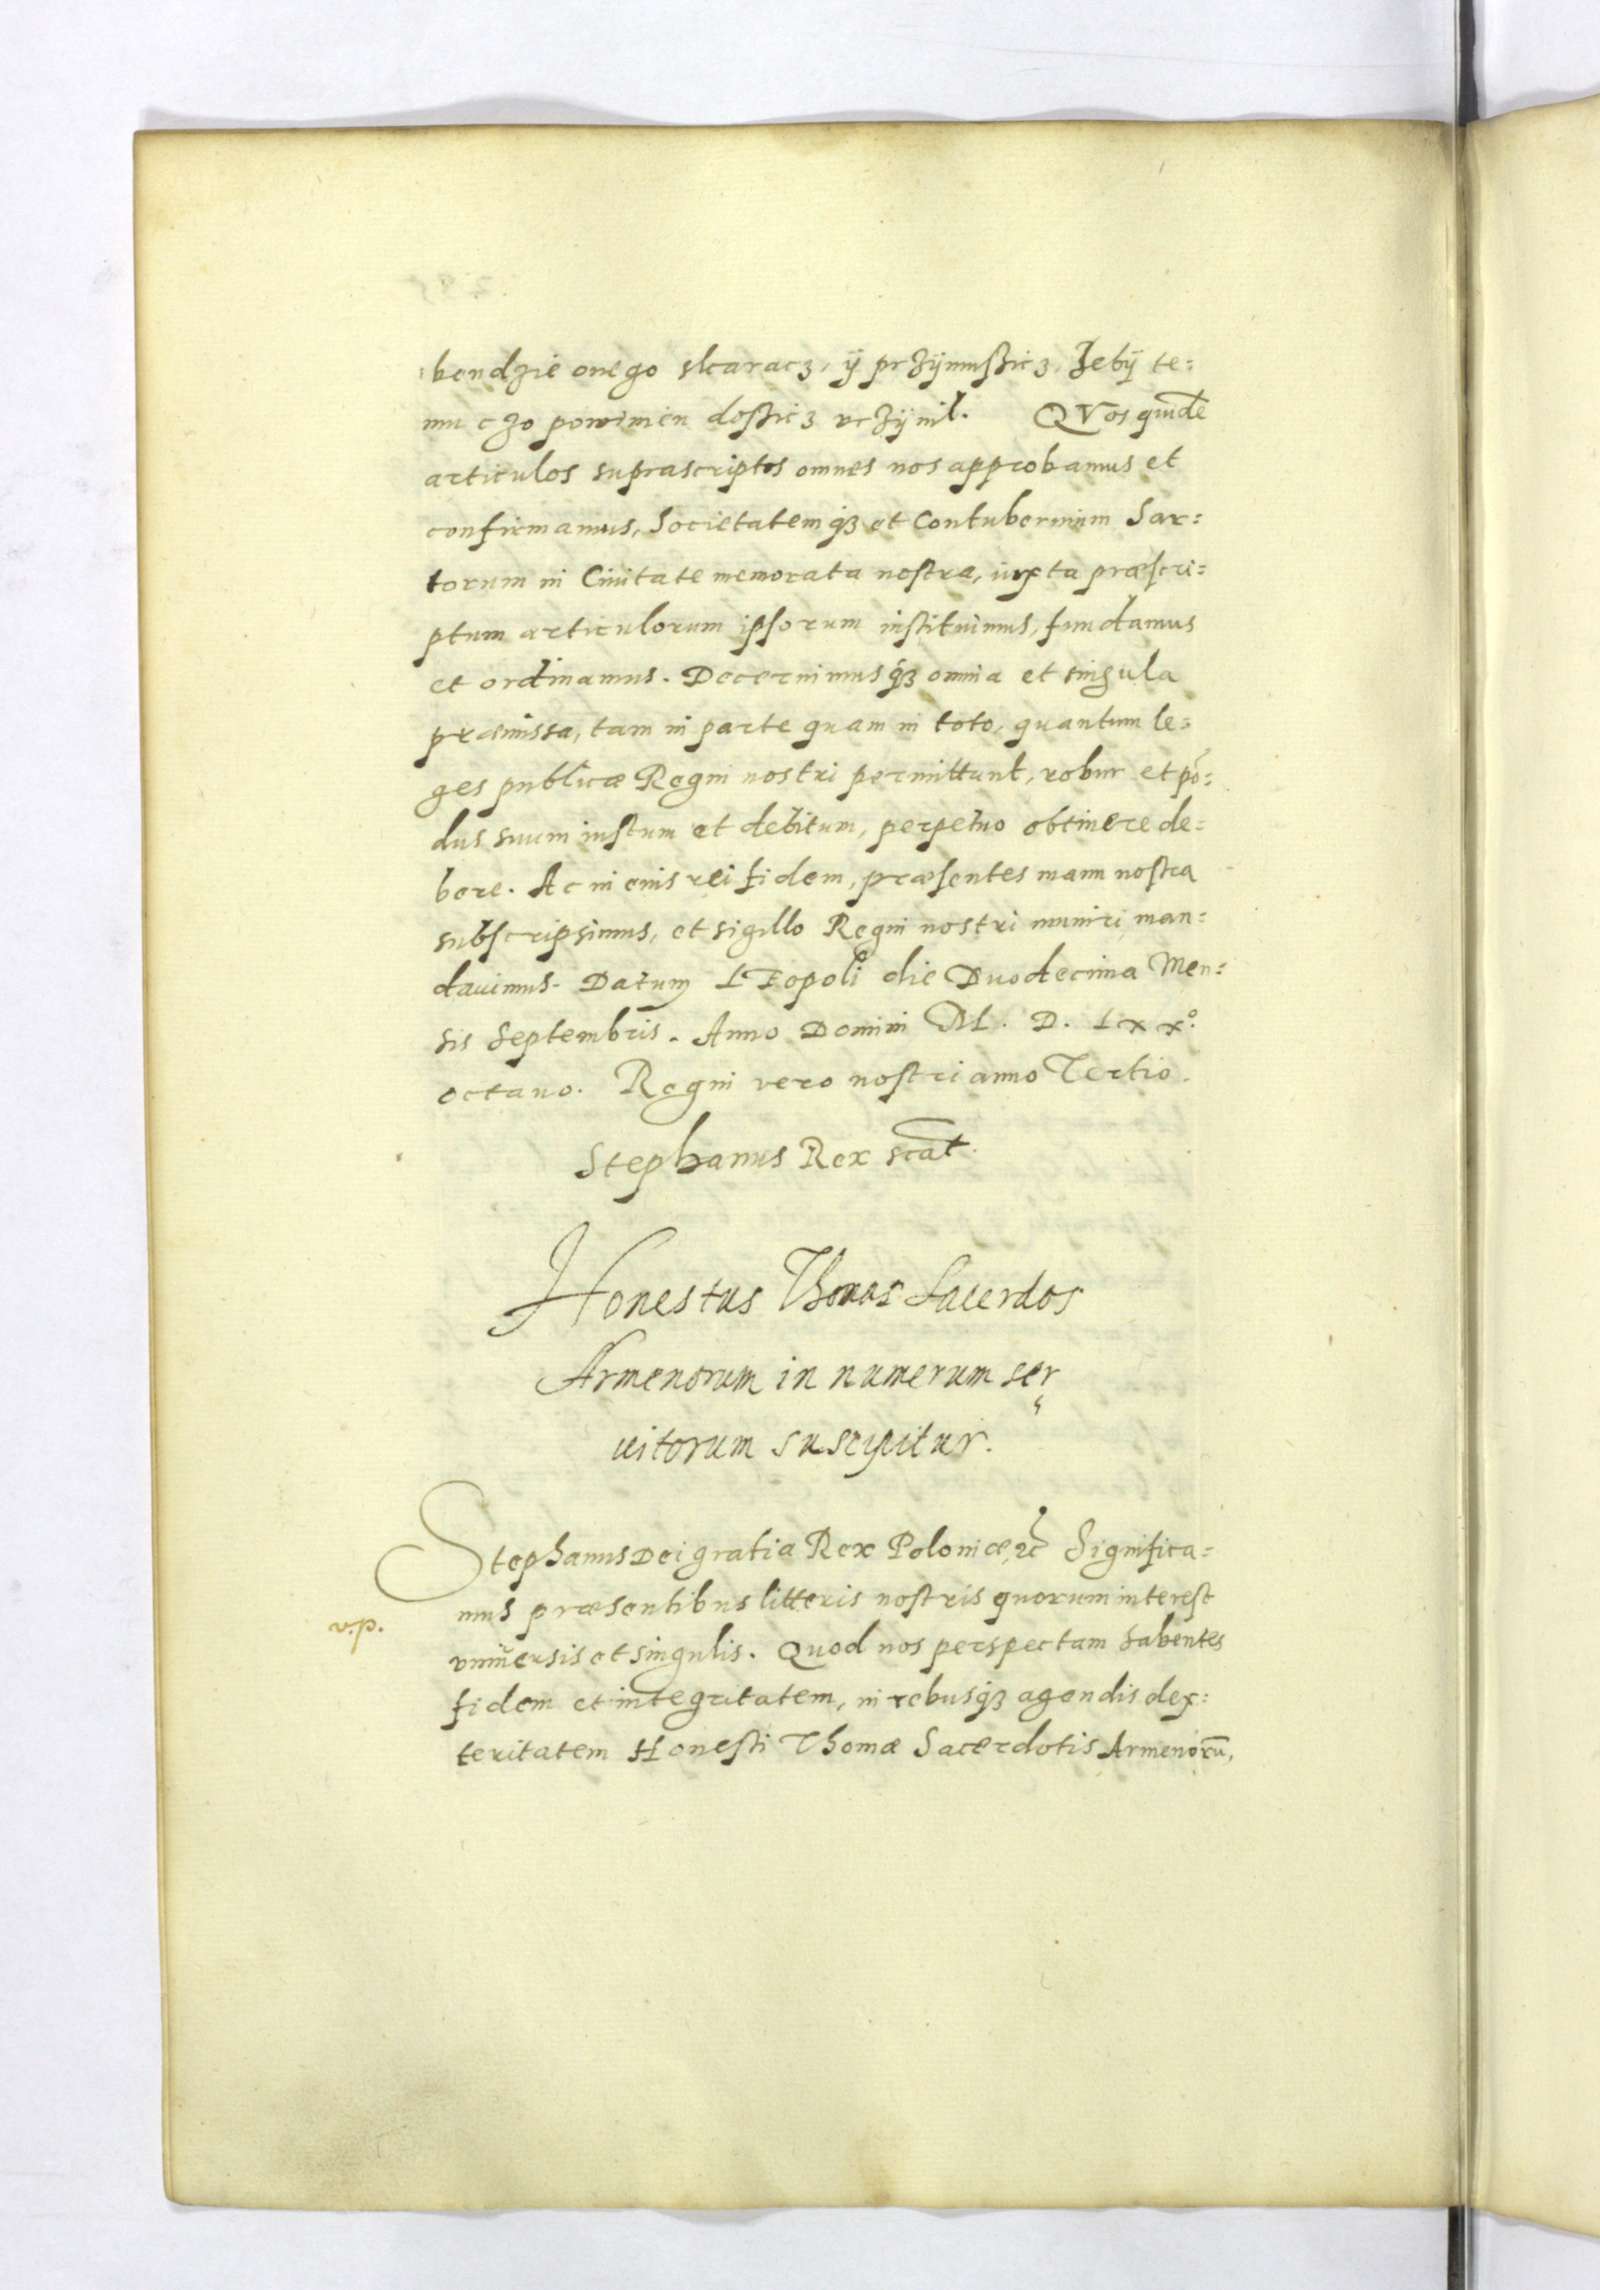 bendzie onego skaracz, ÿ przÿmussicz, Zebÿ te=
mu czo powinien dossicz vczÿnil. QVos quide
articulos suprascriptos omnes nos approbamus et
confirmamus, Societatemq3 et Contubernium Sar=
torum in Ciuitate memorata nostra, iuxta præscri=
ptum articulorum ipsorum instituimus, fundamus
et ordinamus. Decernimusq3 omnia et singula
præmissa, tam in parte quam in toto, quantum le=
ges publicæ Regni nostri permittunt, robur et põ=
dus suum iustum et debitum, perpetuo obtinere de=
bere. Ac in eius rei fidem, præsentes manu nostra
subscripsimus, et sigillo Regni nostri muniri man=
dauimus. Datum LEopoli die Duodecima Men=
sis Septembris. Anno Domini M. D. Lxxº.
octauo. Regni vero nostri anno Tertio.
Stephanus Rex scãt.
Honestus Thomas Sacerdos
Armenorum in numerum ser
uitorum suscipitur.
Stephanus Dei gratia Rex Poloniæ, ꝛc̃ Significa=
mus præsentibus litteris nostris quorum interest
v.p.
vniuersis et singulis. Quod nos perspectam habentes
fidem et integritatem, in rebusq3 agendis dex=
teritatem Honesti Thomæ Sacerdotis Armenorũ,